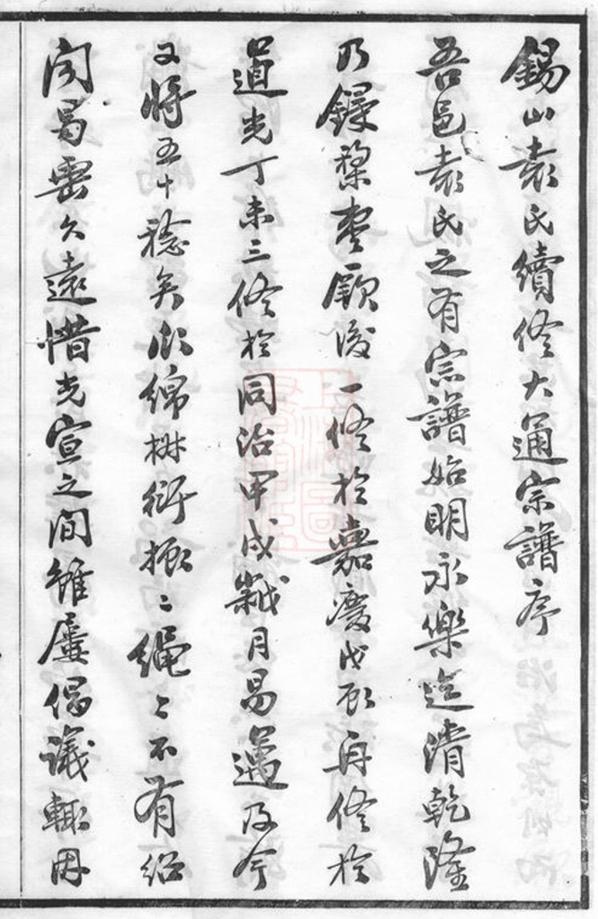 錫山袁氏續修大通宗譜序
吾邑袁氏之有宗譜始明永樂迄清乾隆
乃鋟棃棗厥後一修於嘉慶戊辰再修於
道光丁未三修於同治甲戌歲月易邁及今
又將五十稔矣瓜綿椒衍振〻繩〻不有紹
聞曷垂久遠惜光宣之間雖屢倡議輒因